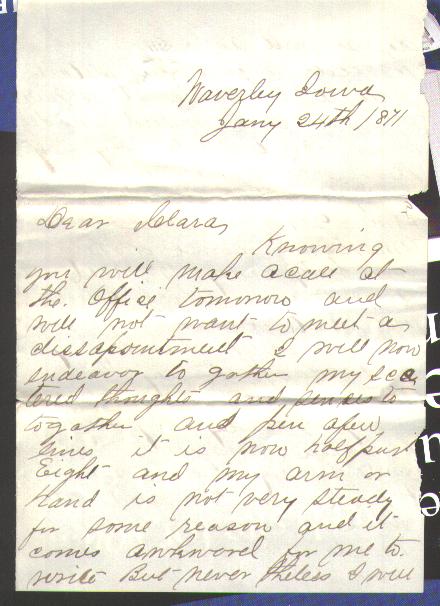 Waverley Iowa
Jany 24th /871
Dear Clara,
Knowing
you will make a call at
the. Office tomorrow and
will not want to meet a
dissapointment I will now
endeavor to gather my sca
tered thoughts and sences to
togather and pen a few
lines it is now half past
Eight and my arm or
hand is not very steady
for some reason and it
comes awkward for me to
write But never theless I will